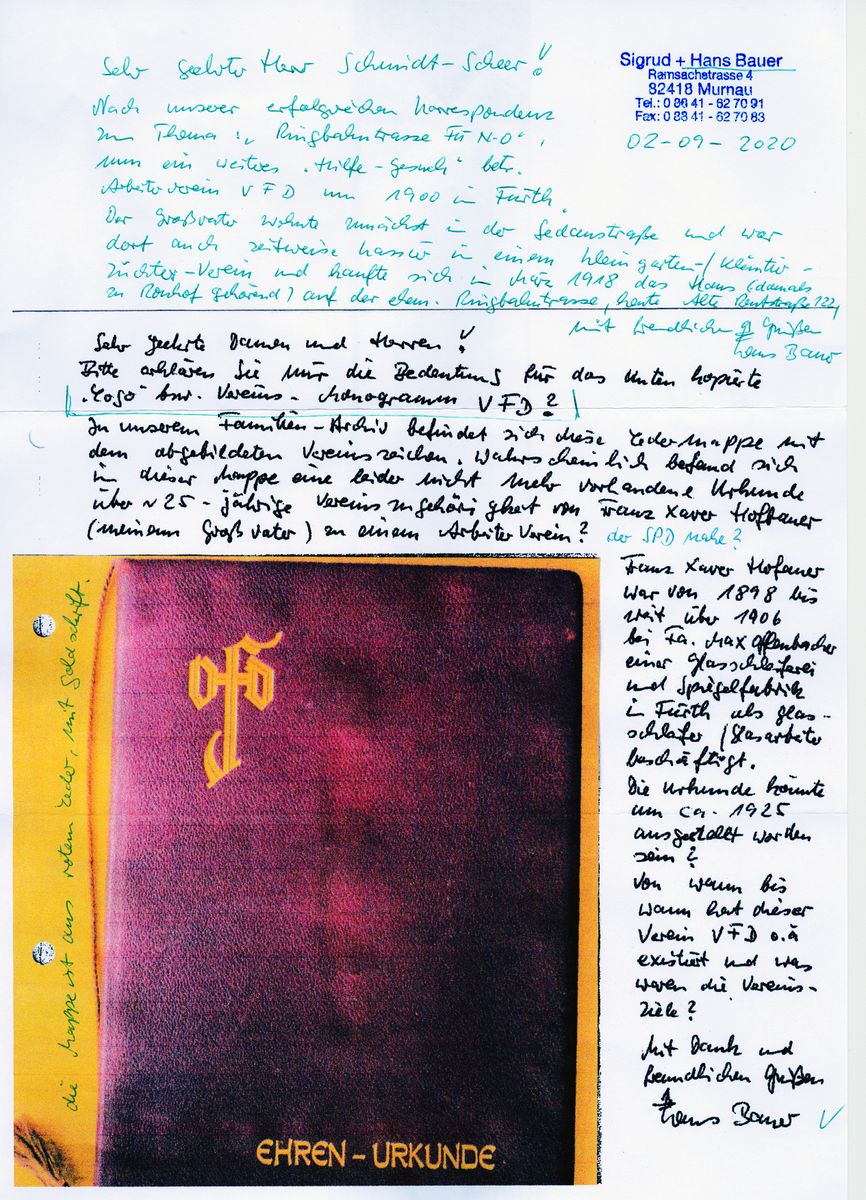 Sehr geehrter Herr Schmidt-Scheer!
Sigrud + Hans Bauer
Ramsachstrasse 4
82418 Murnau
Tel.: 0 88 41 - 62 70 91
Fax: 0 88 41 - 62 70 83
02-09-2020
Nach unserer erfolgreichen Korrespondenz
zum Thema: "Ringbahntrasse FÜ N-O",
nun ein weiteres "Hilfe-Gesuch" betr.
Arbeiterverein VFD um 1900 in Fürth.
Der Großvater wohnte zunächst in der Sedanstraße und war
dort auch zeitweise Kassier in einem Kleingarten-/Kleintier-
züchter-Verein und kaufte sich in März 1918 das Haus (damals
zu Ronhof gehörend) auf der ehem. Ringbahntrasse, heute Alte Reutstraße 122,
mit freundlichen Grüßen
Hans Bauer
Sehr geehrte Damen und Herren!
Bitte erklären Sie mir die Bedeutung für das unten kopierte
"Logo" bzw. Vereins-Monogramm VFD?
In unserem Familien-Archiv befindet sich diese Ledermappe mit
dem abgebildeten Vereinszeichen. Wahrscheinlich befand sich
in dieser Mappe eine leider nicht mehr vorhandene Urkunde
über ~25-jährige Vereinszugehörigkeit von Franz Xaver Hofbauer
(meinem Großvater) zu einem Arbeiterverein? der SPD nahe?
die Mappe ist aus rotem Leder, mit Goldschrift.
EHREN-URKUNDE
Franz Xaver
war von 1898 bis
weit über 1906
bei Fa. Max Offenbacher
einer Glasschleiferei
und Spiegelfabrik
in Fürth als Glas-
schleifer/Glasarbeiter
beschäftigt.
Die Urkunde könnte
um ca. 1925
ausgestellt worden
sein?
Von wann bis
wann hat dieser
Verein VFD o.ä
existiert und was
waren die Vereins-
ziele?
Mit Dank und
freundlichen Grüßen
Hans Bauer